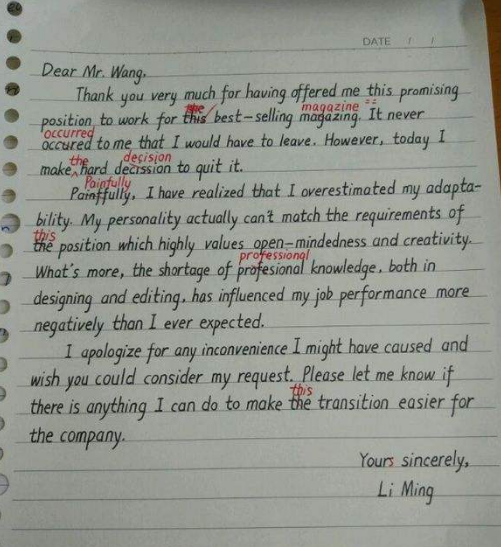 DATE / /
Dear Mr. Wang,
Thank you very much for having offered me this promising
the magazine
position to work for this best-selling magazing. It never
occurred
occured to me that I would have to leave. However, today I
the decision
make hard decission to quit it.
Painfully
Painffully, I have realized that I overestimated my adapta-
bility. My personality actually can't match the requirements of
this
the position which highly values open-mindedness and creativity.
professional
What's more, the shortage of profesional knowledge, both in
designing and editing, has influenced my job performance more
negatively than I ever expected.
I apologize for any inconvenience I might have caused and
wish you could consider my request. Please let me know if
this
there is anything I can do to make the transition easier for
the company.
Yours sincerely,
Li Ming